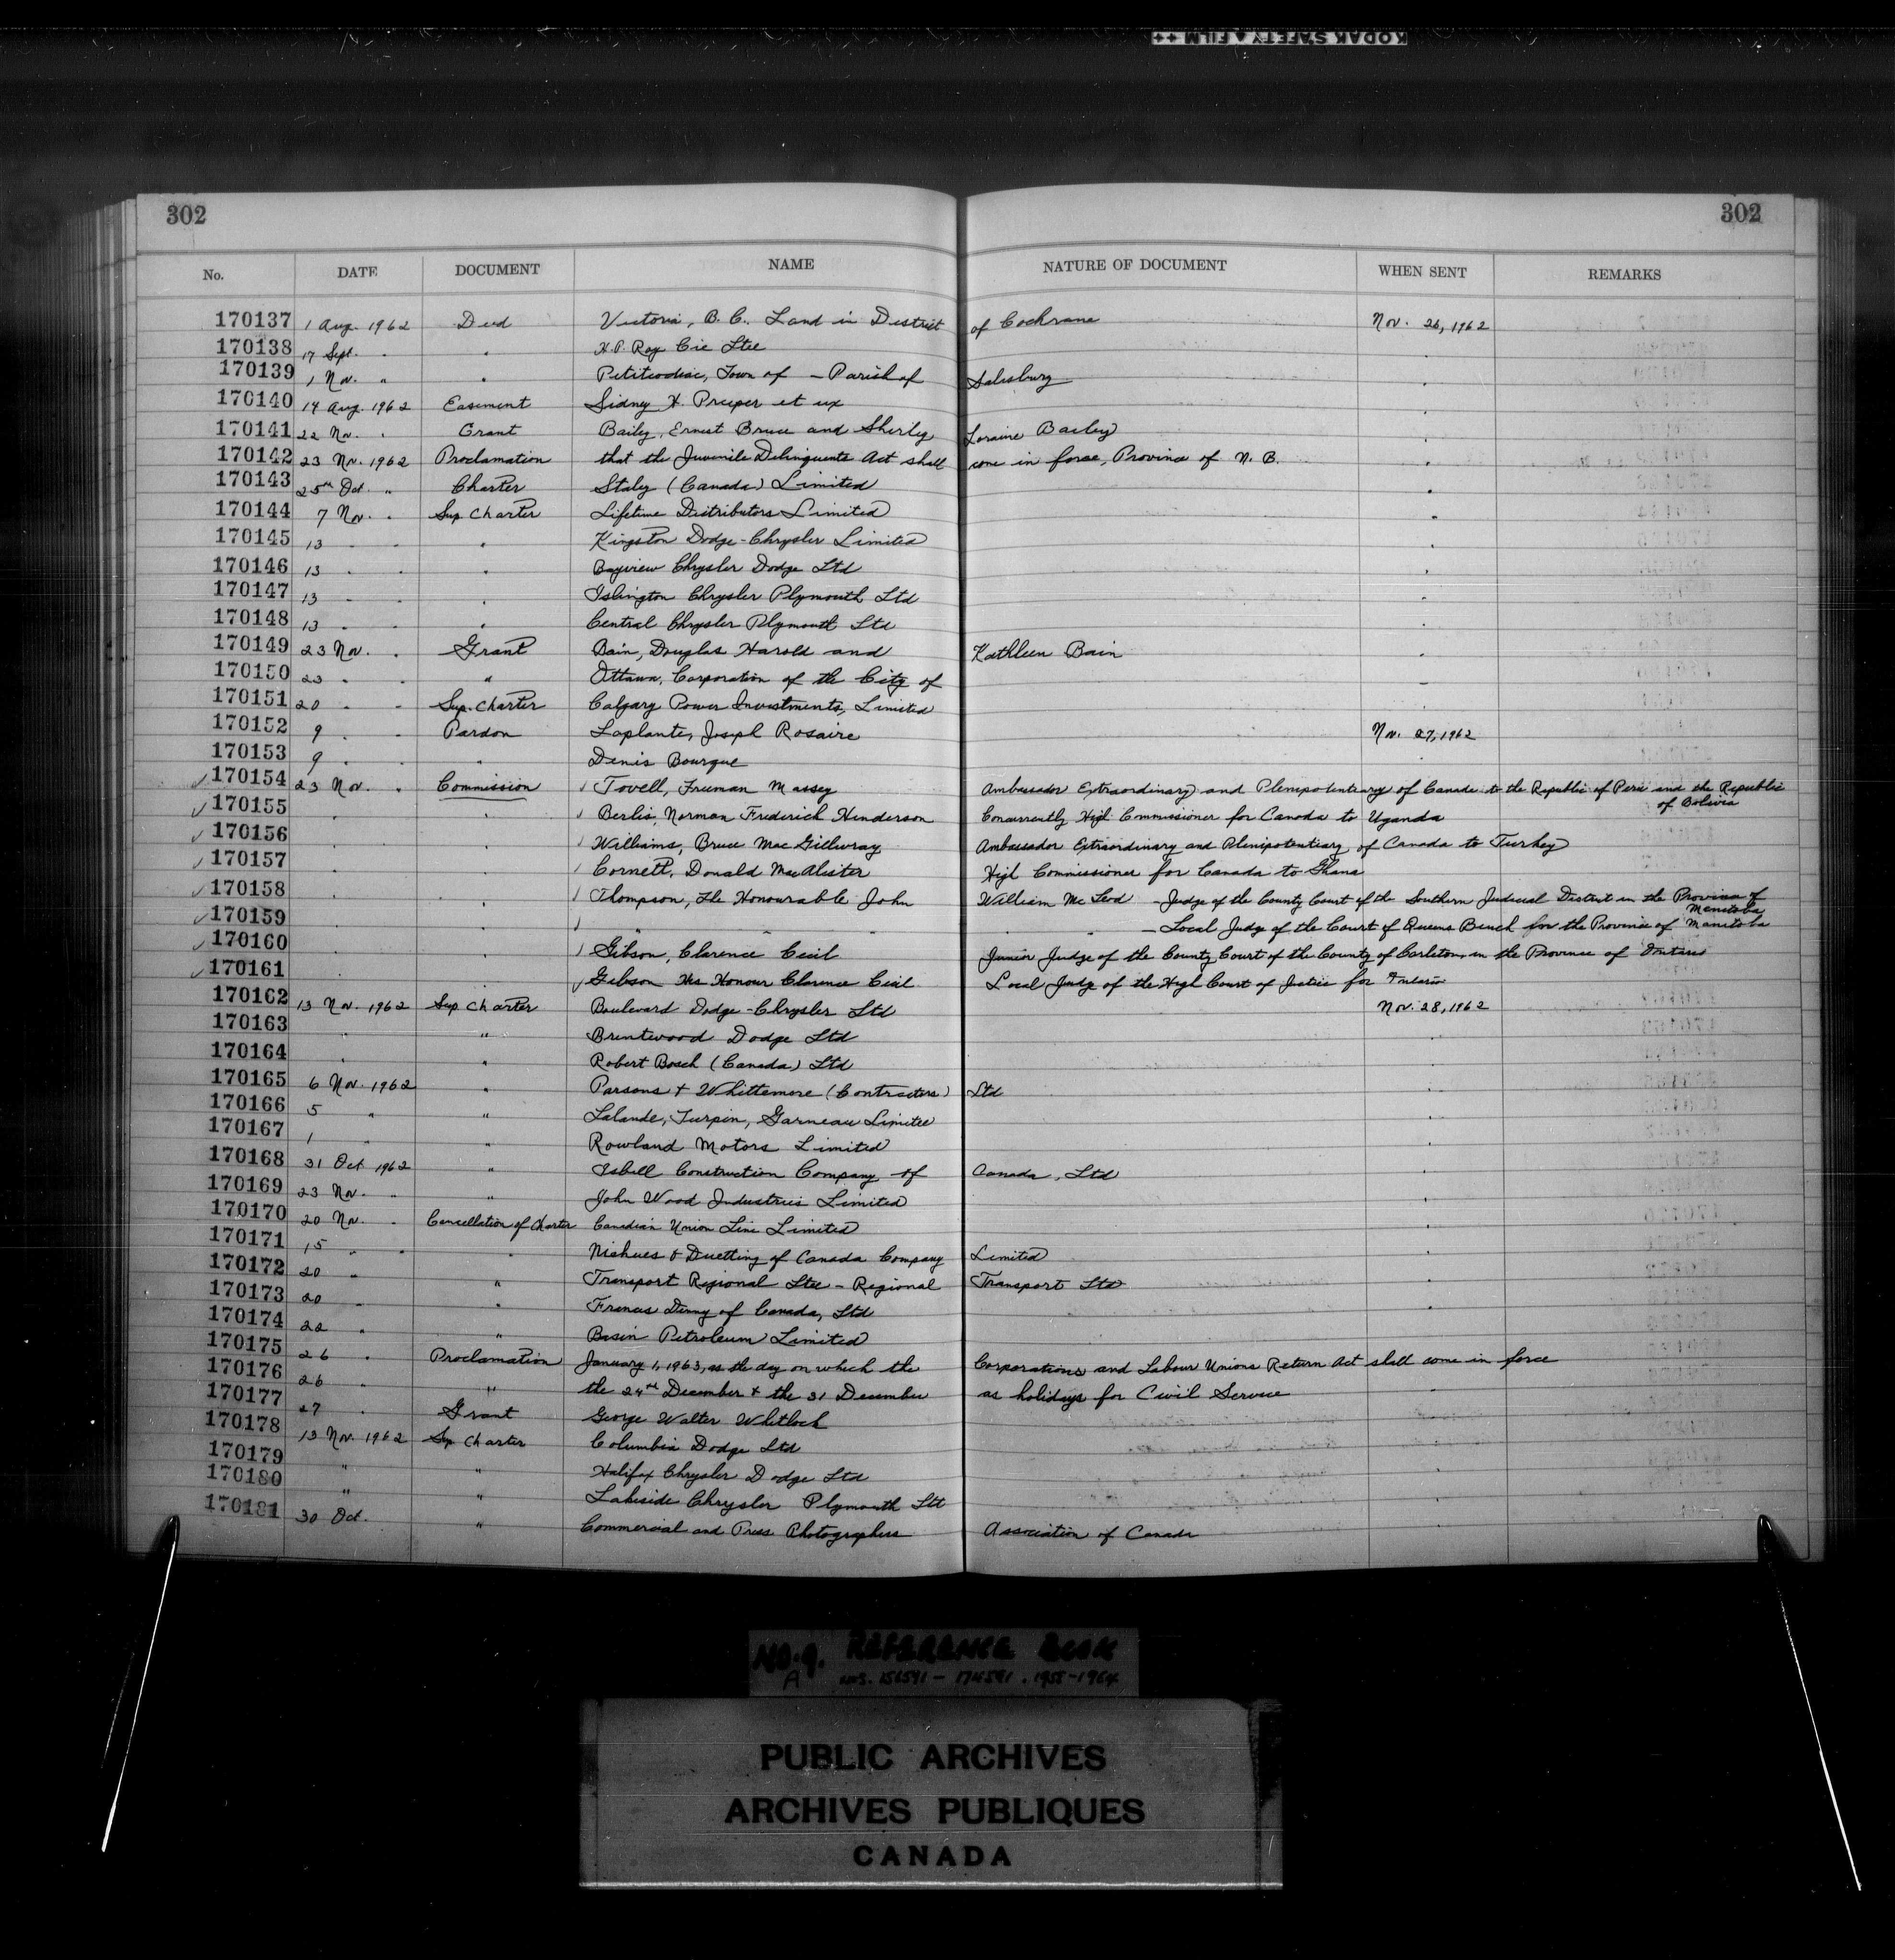 KODAK SAFETY FILM ++
302 302
No. DATE DOCUMENT NAME NATURE OF DOCUMENT WHEN SENT REMARKS
170137 1 Aug. 1962 Deed Victoria, B. C. Land in District of Cochrane Nov. 26, 1962
170138 17 Sept. " " H. P. Roy Cie Ltee "
170139 1 Nov. " " Petitcodiac, Town of - Parish of Salisbury "
170140 14 Aug. 1962 Easement Sidney H. Preeper et ux "
170141 22 Nov. " Grant Bailey, Ernest Bruce and Sherley Loraine Bailey "
170142 23 Nov. 1962 Proclamation that the Juvenile Delinquents Act shall come in force, Province of N. B. "
170143 25th Oct. " Charter Staley (Canada) Limited "
170144 7 Nov. " Sup. Charter Lifetime Distributors Limited "
170145 13 " " " Kingston Dodge-Chrysler Limited "
170146 13 " " " Bayview Chrysler Dodge Ltd "
170147 13 " " " Islington Chrysler Plymouth Ltd "
170148 13 " " " Central Chrysler Plymouth Ltd "
170149 23 Nov. " Grant Bain, Douglas Harold and Kathleen Bain "
170150 23 " " " Ottawa, Corporation of the City of "
170151 20 " " Sup. Charter Calgary Power Investments, Limited "
170152 9 " " Pardon Laplante, Joseph Rosaire Nov. 27, 1962
170153 9 " " " Denis Bourque "
170154 23 Nov. " Commission Tovell, Freeman Massey Ambassador Extraordinary and Plenipotentiary of Canada to the Republic of Peru and the Republic
of Bolivia
170155 " " Berlis, Norman Frederich Henderson Concurrently High Commissioner for Canada to Uganda
170156 " " Williams, Bruce MacGillivray Ambassador Extraordinary and Plenipotentiary of Canada to Turkey
170157 " " Cornett, Donald MacAlister High Commissioner for Canada to Ghana
170158 " " Thompson, The Honourable John William McLeod - Judge of the County Court of the Southern Judicial District in the Province of
Manitoba
170159 " " " " " " - Local Judge of the Court of Queens Bench for the Province of Manitoba
170160 " " Gibson, Clarence Cecil Junior Judge of the County Court of the County of Carleton, in the Province of Ontario
170161 " " Gibson His Honour Clarence Cecil Local Judge of the High Court of Justice for Ontario
170162 13 Nov. 1962 Sup Charter Boulevard Dodge-Chrysler Ltd Nov. 28, 1962
170163 " " Brentwood Dodge Ltd "
170164 " " Robert Bosch (Canada) Ltd "
170165 6 Nov. 1962 " Parsons + Whittemore (Contractors) Ltd "
170166 5 " " Lalande, Turpin, Garneau Limitee "
170167 1 " " Rowland Motors Limited "
170168 31 Oct 1962 " Isbell Construction Company of Canada, Ltd "
170169 23 Nov. " " John Wood Industries Limited "
170170 20 Nov. " Cancellation of Charter Canadian Union Line Limited "
170171 15 " " " Niehues & Duetting of Canada Company Limited "
170172 20 " " Transport Regional Ltee - Regional Transport Ltd "
170173 20 " " Francis Denny of Canada, Ltd "
170174 22 " " Basin Petroleum Limited "
170175 26 " Proclamation January 1, 1963, as the day on which the Corporations and Labour Unions Return Act shall come in force
170176 26 " " the 24th December & the 31 December as holidays for Civil Service "
170177 27 " Grant George Walter Whitlock "
170178 13 Nov. 1962 Sup Charter Columbia Dodge Ltd "
170179 " " Halifax Chrysler Dodge Ltd "
170180 " " Lakeside Chrysler Plymouth Ltd "
170181 30 Oct. " Commercial and Press Photographers Association of Canada "
NO. 9. REFERENCE BOOK
A nos. 156591 - 174591. 1958-1964
PUBLIC ARCHIVES
ARCHIVES PUBLIQUES
CANADA